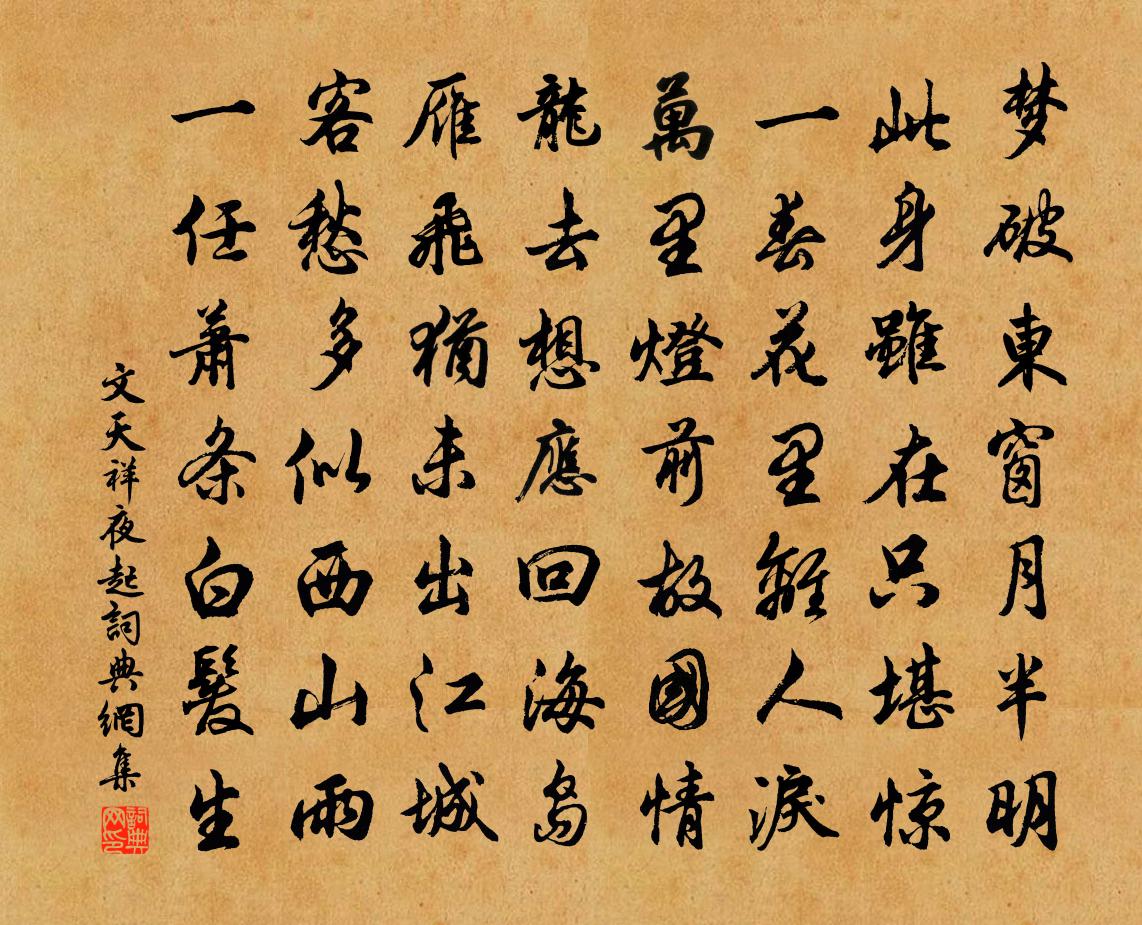 梦破東窗月半明
此身雖在只堪惊
一春花里離人淚
萬里燈前故國情
龍去想應回海岛
雁飛猶未出江城
客愁多似西山雨
一任萧条白髮生
文天祥夜起詞典網集
詞典网印